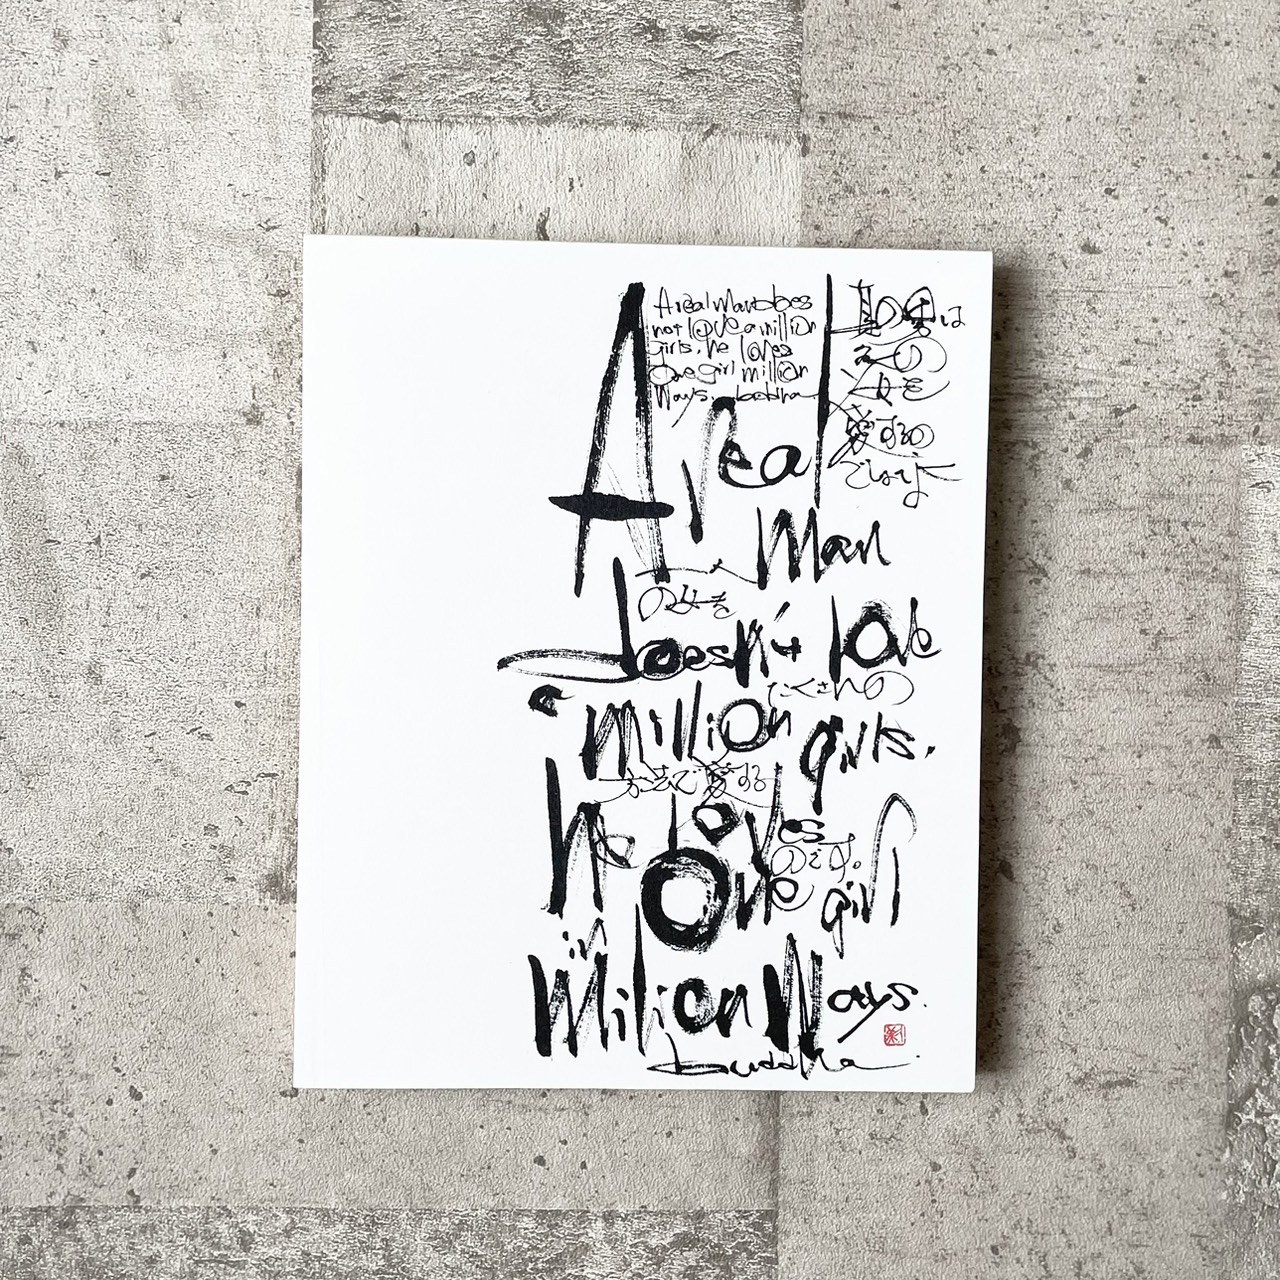 A real Man does
not love a million
girls. he loves
One girl million
Ways. buddha
真の男は
多くの
女を
愛するの
ではなく
A real
Man
一人
の女を
doesn't love
たくさんの
a million girls.
方法で愛する
he loves
のです。
One girl
in
Milion Ways.
buddha